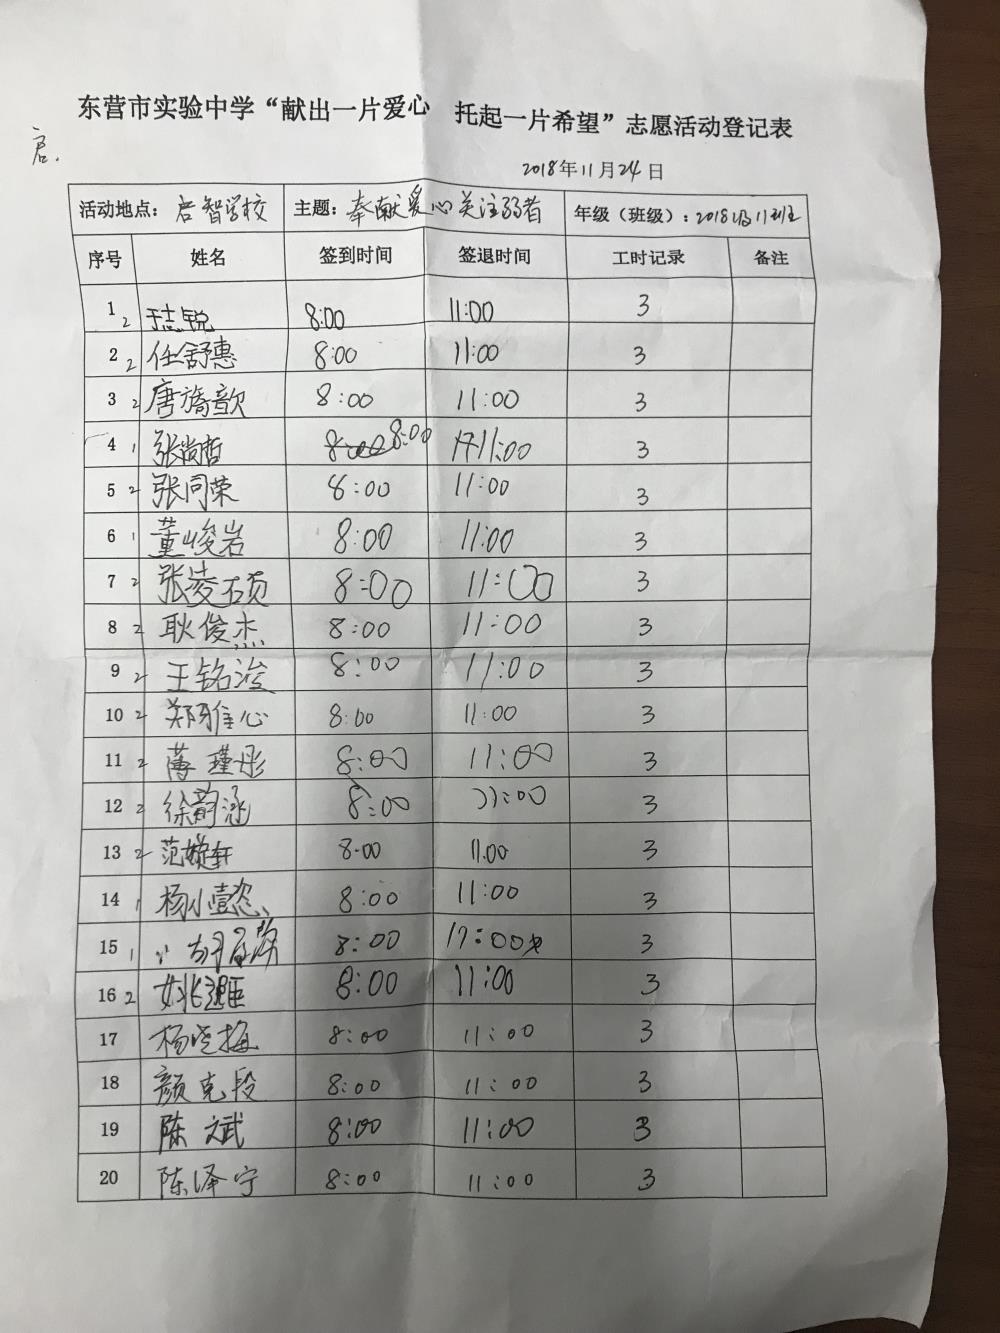 东营市实验中学“献出一片爱心 托起一片希望”志愿活动登记表
启.
2018年11月24日
活动地点：启智学校 主题：奉献爱心关注弱者 年级（班级）：2018级11班
序号 姓名 签到时间 签退时间 工时记录 备注
1 2 于志锐 8:00 11:00 3
2 2 任舒惠 8:00 11:00 3
3 2 唐旖歆 8:00 11:00 3
4 1 张尚哲 8:00 11:00 3
5 2 张同荣 8:00 11:00 3
6 1 董峻岩 8:00 11:00 3
7 2 张凌硕 8:00 11:00 3
8 2 耿俊杰 8:00 11:00 3
9 2 王铭浚 8:00 11:00 3
10 2 郑雅心 8:00 11:00 3
11 2 薄瑾彤 8:00 11:00 3
12 2 徐韵涵 8:00 11:00 3
13 2 范婕轩 8.00 11.00 3
14 1 杨小懿 8:00 11:00 3
15 1 8:00 3
16 2 姚 8:00 11:00 3
17 杨晓梅 8:00 11:00 3
18 颜克段 8:00 11:00 3
19 陈斌 8:00 11:00 3
20 陈泽宁 8:00 11:00 3